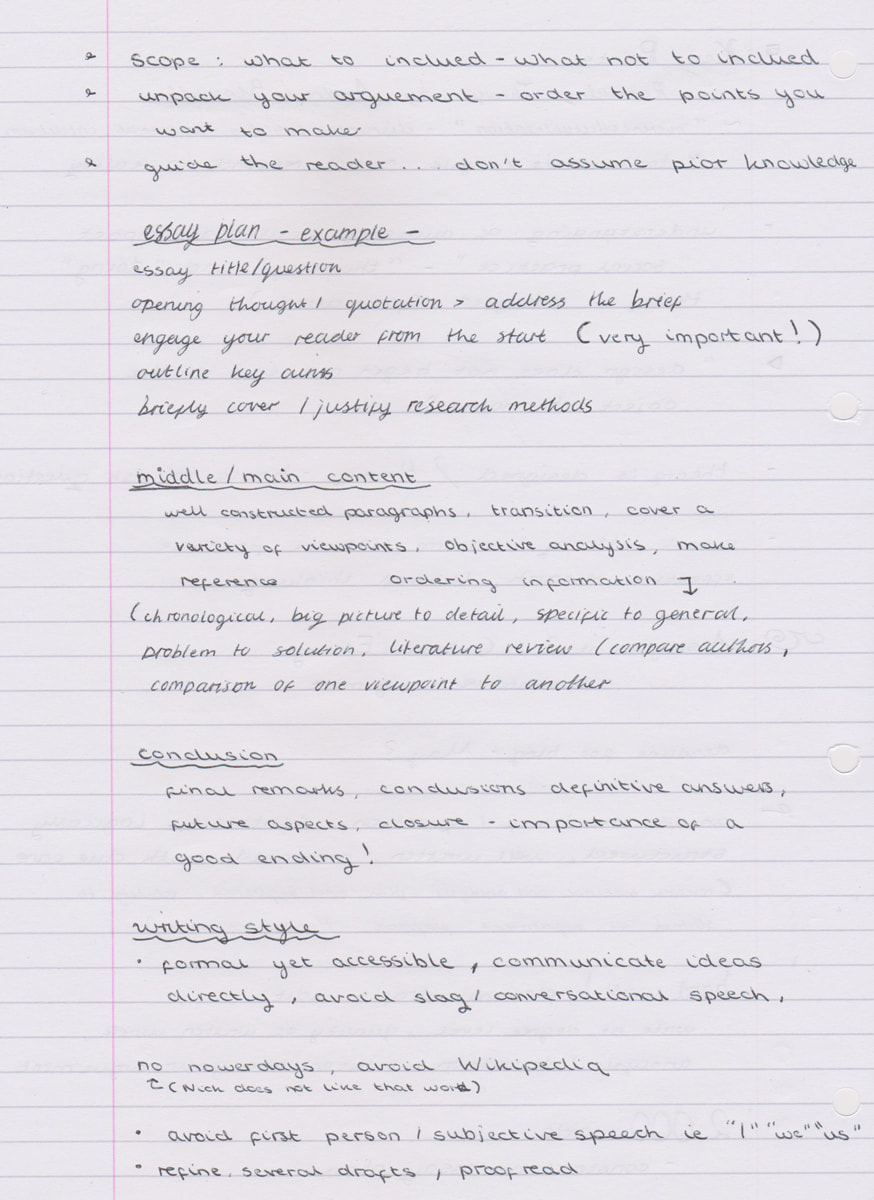 scope : what to inclued - what not to inclued
unpack your arguement - order the points you
want to make
guide the reader... don't assume pior knowledge
essay plan - example -
essay title/question
opening thought / quotation > address the brief
engage your reader from the start (very important!)
outline key aims
briefly cover / justify research methods
middle / main content
well constructed paragraphs, transition, cover a
variety of viewpoints, objective analysis, make
reference ordering information ↴
(chronological, big picture to detail, specific to general,
problem to solution, literature review (compare authors,
comparison of one viewpoint to another
conclusion
final remarks, conclusions definitive answers,
future aspects, closure - importance of a
good ending!
writing style
• formal yet accessible, communicate ideas
directly, avoid slag / conversational speech,
no nowerdays, avoid Wikipedia
↑ (Nick does not like that word)
• avoid first person / subjective speech ie "I" "we" "us"
• refine, several drafts, proofread